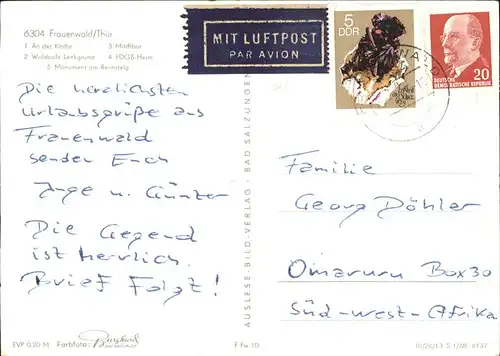 6304 Frauenwald/Thür
1 An der Kirche 3 Milchbar
2 Waldcafe Lenkgrund 4 FDGB-Heim
5 Monument am Rennsteig
MIT LUFTPOST
PAR AVION
5
DDR
20
DEUTSCHE
DEMOKRATISCHE REPUBLIK
Die herzlichsten
Urlaubsgrüße aus
Frauenwald
senden Euch
Inge u. Günter
Die Gegend
ist herrlich.
Brief Folgt!
AUSLESE-BILD-VERLAG · BAD SALZUNGEN
Familie
Georg Döhler
Omaruru Box 30
Süd-west-Afrika
EVP 0,20 M Farbfoto:
F Fw 1D